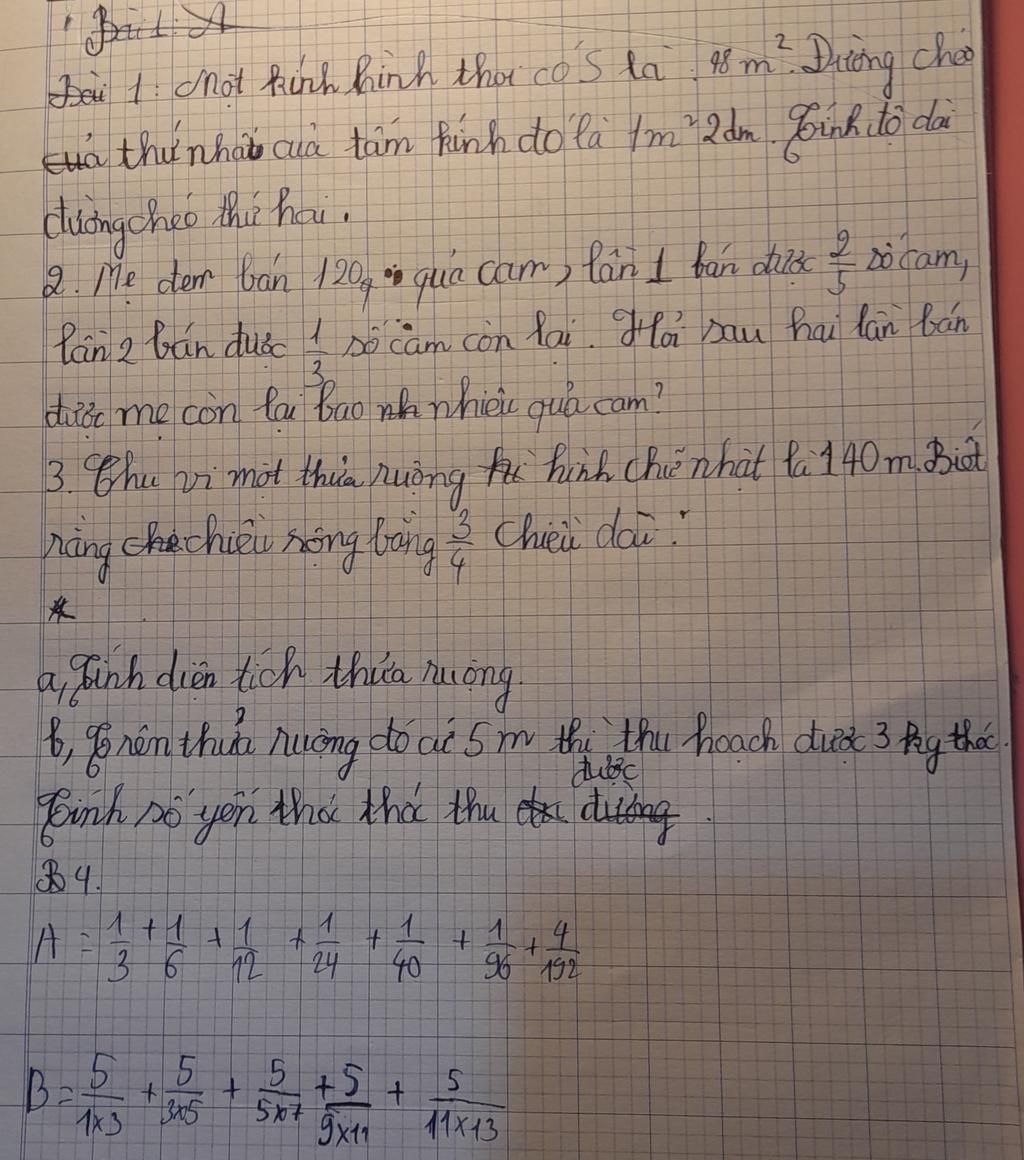 Bài 1: A
Bài 1: Một kính hình thoi có S là: 98 m². Đường chéo
của thứ nhất của tấm kính đó là 1m² 2dm. Tính độ dài
đường chéo thứ hai.
2. Mẹ đem bán 120 quả cam, lần 1 bán được 2/5 số cam,
lần 2 bán được 1/3 số cam còn lại. Hỏi sau hai lần bán
được mẹ còn lại bao nh nhiêu quả cam?
3. Chu vi một thửa ruộng hì hình chữ nhật là 140 m. Biết
rằng chc chiều rộng bằng 3/4 chiều dài.
a, Tính diện tích thửa ruộng.
b, Trên thửa ruộng đó cứ 5 m thì thu hoạch được 3 kg thóc.
Tính số yến thóc thóc thu được đường.
B 4.
A = 1/3 + 1/6 + 1/12 + 1/24 + 1/40 + 1/96 + 4/192
B = 5/1×3 + 5/3×5 + 5/5×7 + 5/9×11 + 5/11×13